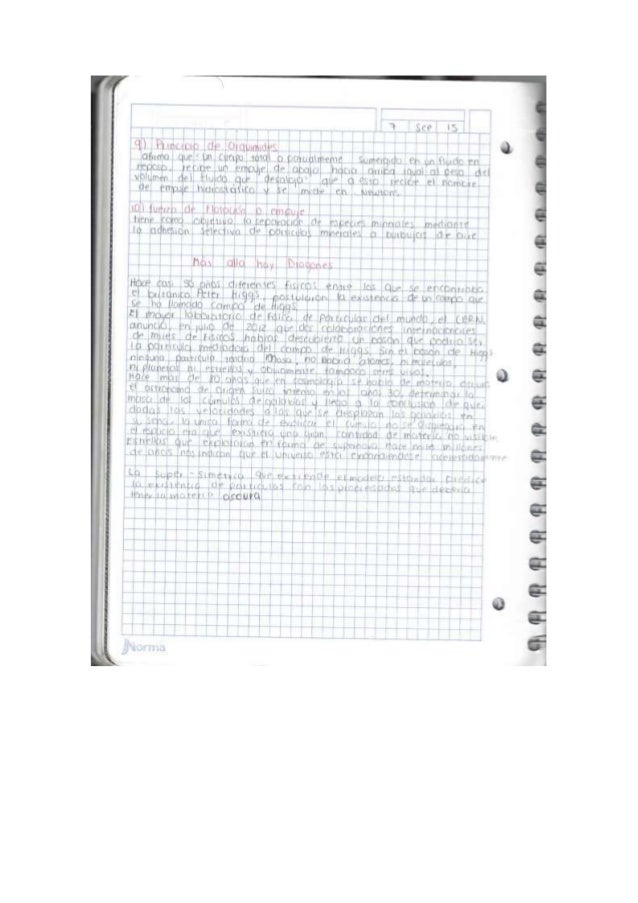 7 Sep 15
9) Principio de Arquimides
afirma que "Un cuerpo total o parcialmente sumergido en un fluido en
reposo, recibe un empuje de abajo hacia arriba igual al peso del
volumen del fluido que desaloja" que a esto recibe el nombre
de empuje hidrostático y se mide en Newtons.
10) fuerza de flotación o empuje
tiene como objetivo, la separación de especies minerales mediante
la adhesión selectiva de partículas minerales a burbujas de aire
Más alla hay Dragones
Hace casi 50 años diferentes físicos entre los que se encontraba
el británico Peter Higgs, postularon la existencia de un campo que
se ha llamado campo de Higgs.
El mayor laboratorio de Física de Particular del mundo, el CERN,
anunció, en julio de 2012 que dos colaboraciones internacionales
de miles de físicos habías descubierto un bosón que podría ser
la partícula mediadora del campo de Higgs. Sin el bosón de Higgs
ninguna partícula tendría Masa, no habría átomos, ni moléculas,
ni planetas ni estrellas y obviamente tampoco seres vivos.
Hace más de 80 años que en cosmología se habla de materia oscura
el astronomo de origen suizo intento en los años 30, determinar la
masa de los cúmulos de galaxias y llego a la conclusion de que
dadas las velocidades a las que se desplazan las galaxias en
su seno, la unica forma de explicar el cumulo no se dispersara en
el espacio era que existiera una gran cantidad de materia no visible
Estrellas que explotaron en forma de supernova hace miles millones
de años nos indican que el universo está expandiendose aceleradamente
La super-simetría que extiende el modelo estándar predice
la existencia de partículas con las propiedades que debería
tener la materia oscura
Norma